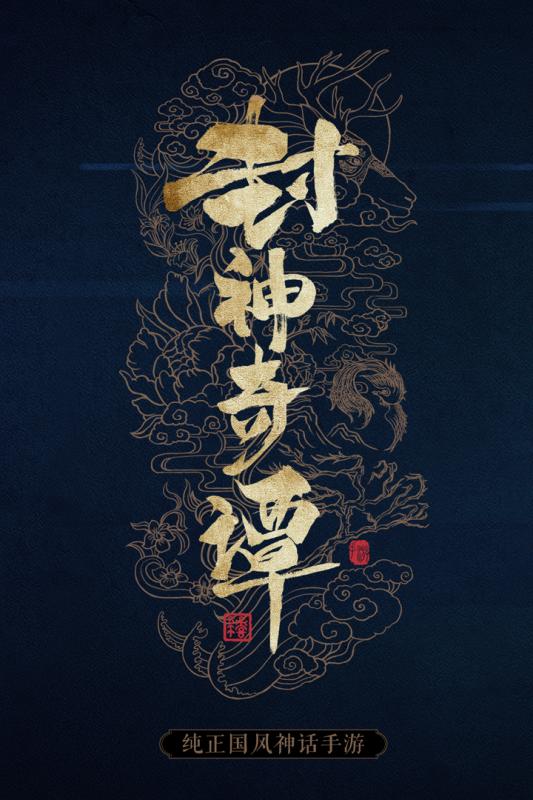 封神奇谭
纯正国风神话手游